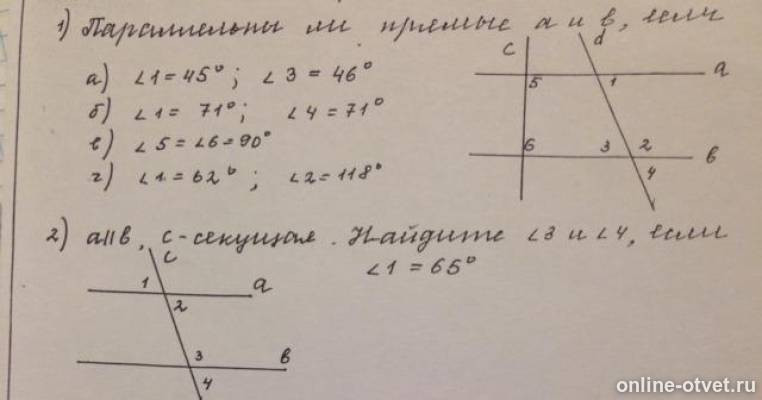 1) Параллельны ли прямые a и b, если
а) ∠1 = 45°; ∠3 = 46°
б) ∠1 = 71°; ∠4 = 71°
в) ∠5 = ∠6 = 90°
г) ∠1 = 62°; ∠2 = 118°
c d
a
5 1
6 3 2
b
4
2) a||b, c-секущая. Найдите ∠3 и ∠4, если
∠1 = 65°
c
1 a
2
3 b
4
online-otvet.ru